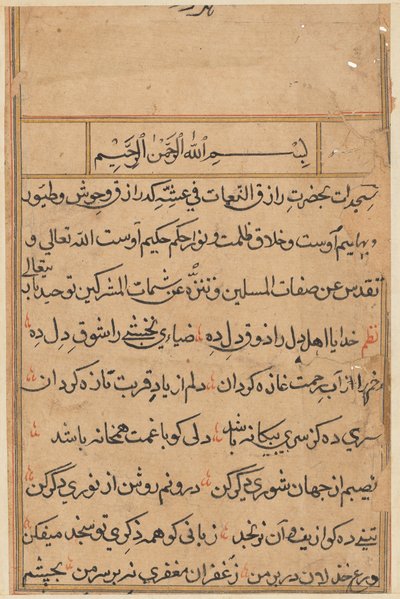 بسم الله الرحمن الرحیم
سجدات بحضرت رازق النعمات فی که رازق وحوش وطیور
وبهایم اوست وخلاق ظلمت ونوار حکم حکیم اوست الله تعالی و
تقدس عن صفات المسلین وتنزه عن شمات المشرکین توحید تعالی
نظم خدایا اهل دل را ذوق دل ده ضیاری نخشبے را شوق دل ده
را از آب رحمت غازه کردان دلم از یاد قربت تازه کردان
سری ده کز سری بیکانه باشد دلی کو با غمت همخانه باشد
نصیبم از جهان شوری دکر کن درونم روشن از نوری دکر کن
تنے ده کو از آن نرنجد زبانی کو همه ذکری تو سنجد میفکن
در بر من زعفران مغفری نه بر سر من بچشم